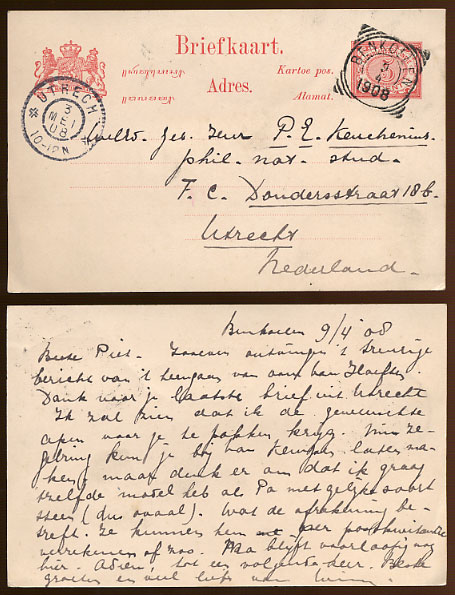 Briefkaart.
Kartoe pos.
Adres.
Alamat.
BENKOELEN
3
4
1908
UTRECH
3
MEI
08
10-12N
Ges. Heer P. E. Keuchenius.
phil. nat. stud.
F. C. Dondersstraat 18b.
Utrecht
Nederland.
Benkoelen 9/4 08
Beste Piet. Zooeven ontvingen 't treurige
bericht van 't heengaan van oom van
Dank voor je laatste brief uit Utrecht
Ik zal zien dat ik de gewenschte
apen voor je te pakken krijg. Mijn ze-
gelring kun je bij van Kempen laten ma-
ken maar denk er om dat ik graag
't zelfde model heb als Pa met gelijke soort
steen (dus ovaal). Wat de afrekening be-
treft. Ze kunnen hem per
verrekenen of zoo. Ma blijft voorloopig nog
hier. Adieu, tot een volgende keer. Beste
groeten en veel liefs van